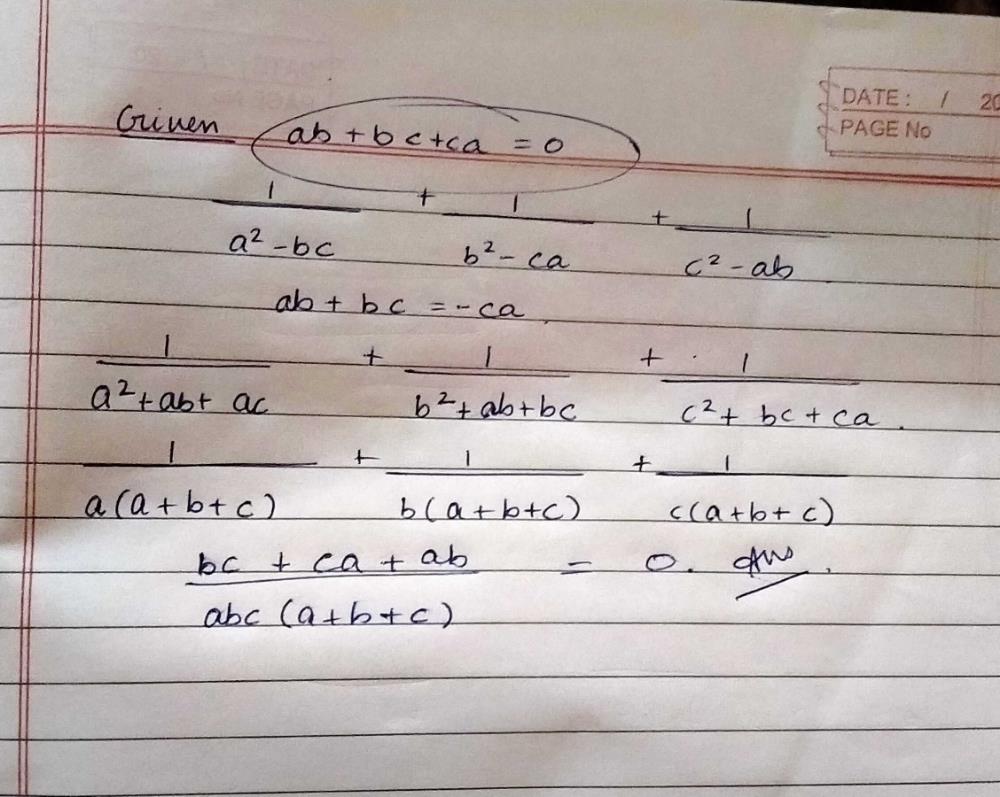 DATE: / 20
PAGE No
Given ab + bc + ca = 0
1/(a² - bc) + 1/(b² - ca) + 1/(c² - ab)
ab + bc = -ca
1/(a² + ab + ac) + 1/(b² + ab + bc) + 1/(c² + bc + ca)
1/(a(a + b + c)) + 1/(b(a + b + c)) + 1/(c(a + b + c))
(bc + ca + ab)/(abc (a + b + c)) = 0. Ans.